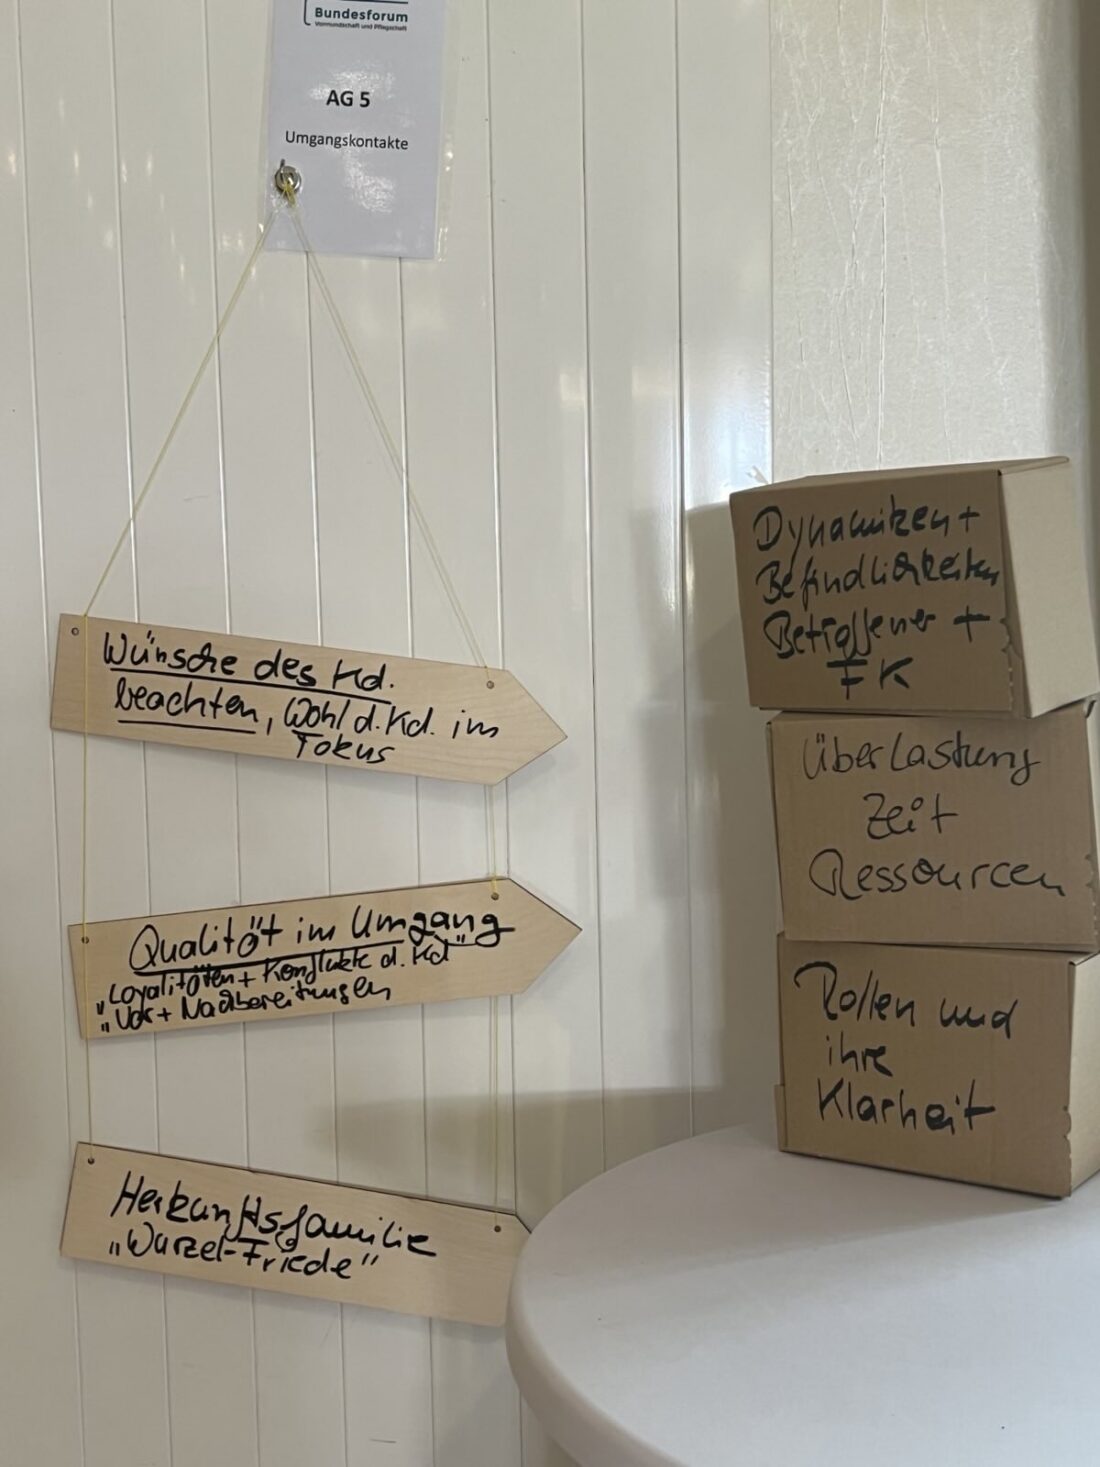 Bundesforum
Vormundschaft und Pflegschaft
AG 5
Umgangskontakte
Wünsche des Kd.
beachten, Wohl d. Kd. im
Fokus
Qualität im Umgang
"Loyalitäten + Konflikte d. Kd"
"Vor + Nachbereitungen
Herkunftsfamilie
"Wurzel-Friede"
Dynamiken +
Befindlichkeiten
Betroffener +
FK
Überlastung
Zeit
Ressourcen
Rollen und
ihre
Klarheit